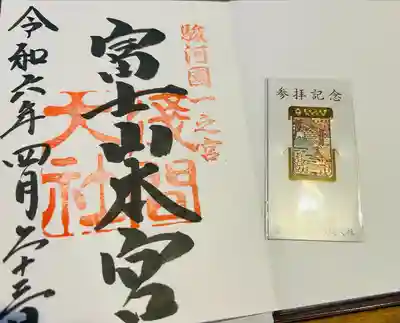 駿河國一之宮
富士山本宮
淺間大社
令和六年四月二十三日
参拝記念